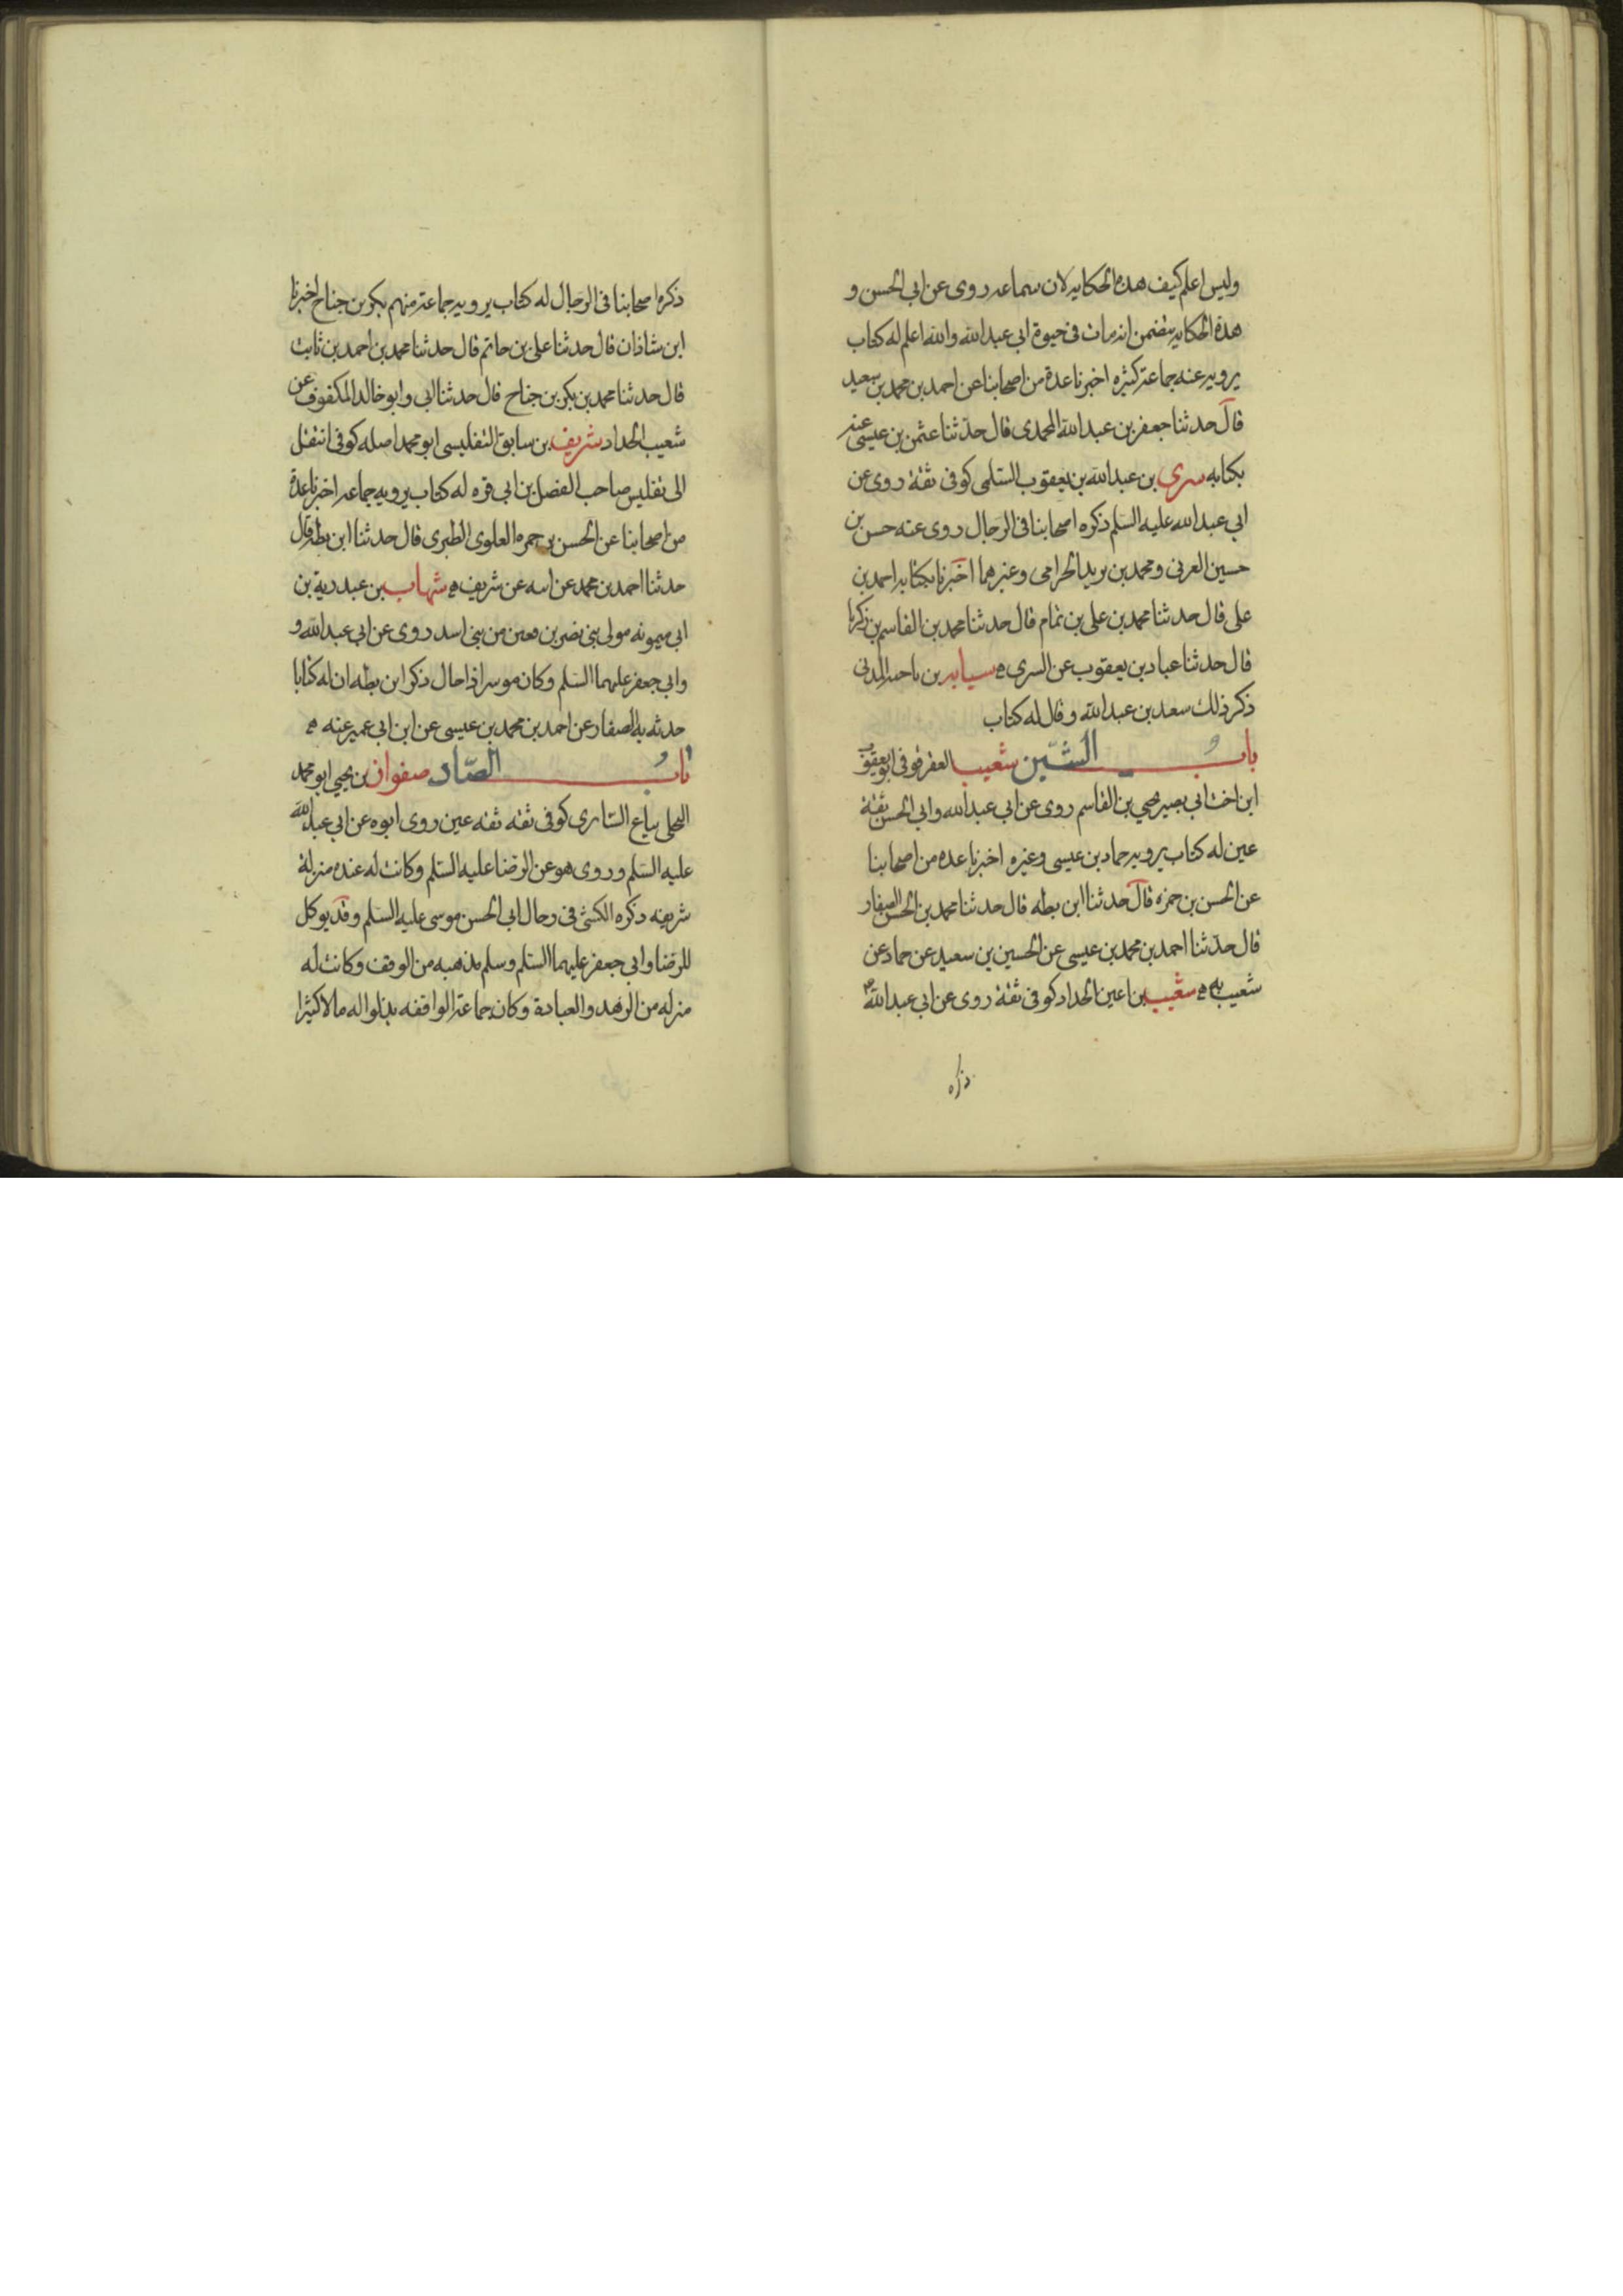 وليس اعلم كيف هذه الحكايه لان سماعه روى عن ابى الحسن و
هذه الحكايه يتضمن انه مات فى حيوة ابى عبد الله والله اعلم له كتاب
يرويه عنه جماعة كثيره اخبرنا عدة من اصحابنا عن احمد بن محمد بن سعيد
قال حدثنا جعفر بن عبد الله المحمدى قال حدثنا عثمن بن عيسى عنه
بكتابه سرى بن عبد الله بن يعقوب السّلمى كوفى ثقة روى عن
ابى عبد الله عليه السّلم ذكره اصحابنا فى الرجال روى عنه حسن بن
حسين العرنى ومحمد بن يريد الحرامى وغيرهما اخبرنا بكتابه احمد بن
على قال حدثنا محمد بن على بن تمام قال حدثنا محمد بن القاسم بن زكريا
قال حدثنا عباد بن يعقوب عن السرى ه سيابه بن ناحيه المدنى
ذكر ذلك سعد بن عبد الله وقال له كتاب
بابُ الشّين شعيب العقرقوفى ابو يعقوب
ابن اخت ابى بصير يحيى بن القاسم روى عن ابى عبد الله وابى الحسن ثقة
عين له كتاب يرويه حماد بن عيسى وغيره اخبرنا عده من اصحابنا
عن الحسن بن حمزه قال حدثنا ابن بطه قال حدثنا محمد بن الحسن الصفار
قال حدّثنا احمد بن محمد بن عيسى عن الحسين بن سعيد عن حماد عن
شعيب به ه شعيب بن اعين الحداد كوفى ثقة روى عن ابى عبد الله
ذكره
ذكره اصحابنا فى الرجال له كتاب يرويه جماعة منهم بكر بن جناح اخبرنا
ابن شاذان قال حدثنا على بن حاتم قال حدثنا محمد بن احمد بن ثابت
قال حدثنا محمد بن بكر بن جناح قال حدثنا ابى وابو خالد المكفوف عن
شعيب الحداد شريف بن سابق التفليسى ابو محمد اصله كوفى انتقل
الى تفليس صاحب الفضل بن ابى قره له كتاب يرويه جماعه اخبرنا عدة
من اصحابنا عن الحسن بن حمزه العلوى الطبرى قال حدثنا ابن بطه قال
حدثنا احمد بن محمد عن ابيه عن شريف ه شهاب بن عبد ربه بن
ابى ميمونه مولى بنى نصر بن معين من بنى اسد روى عن ابى عبد الله و
وابى جعفر عليهما السّلم وكان موسرا ذا حال ذكر ابن بطه ان له كتابا
حدثه به الصفار عن احمد بن محمد بن عيسى عن ابن ابى عمير عنه ه
بابُ الصّاد صفوان بن يحيى ابو محمد
البجلى بياع السّابرى كوفى ثقه ثقه عين روى ابوه عن ابى عبد الله
عليه السّلم وروى هو عن الرضا عليه السّلم وكانت له عنده منزلة
شريفه ذكره الكشى فى رجال ابى الحسن موسى عليه السّلم وقد يوكل
للرضا وابى جعفر عليهما السّلم وسلم مذهبه من الوقف وكانت له
منزله من الزهد والعبادة وكان جماعة الواقفه بذلوا له مالا كثيرا